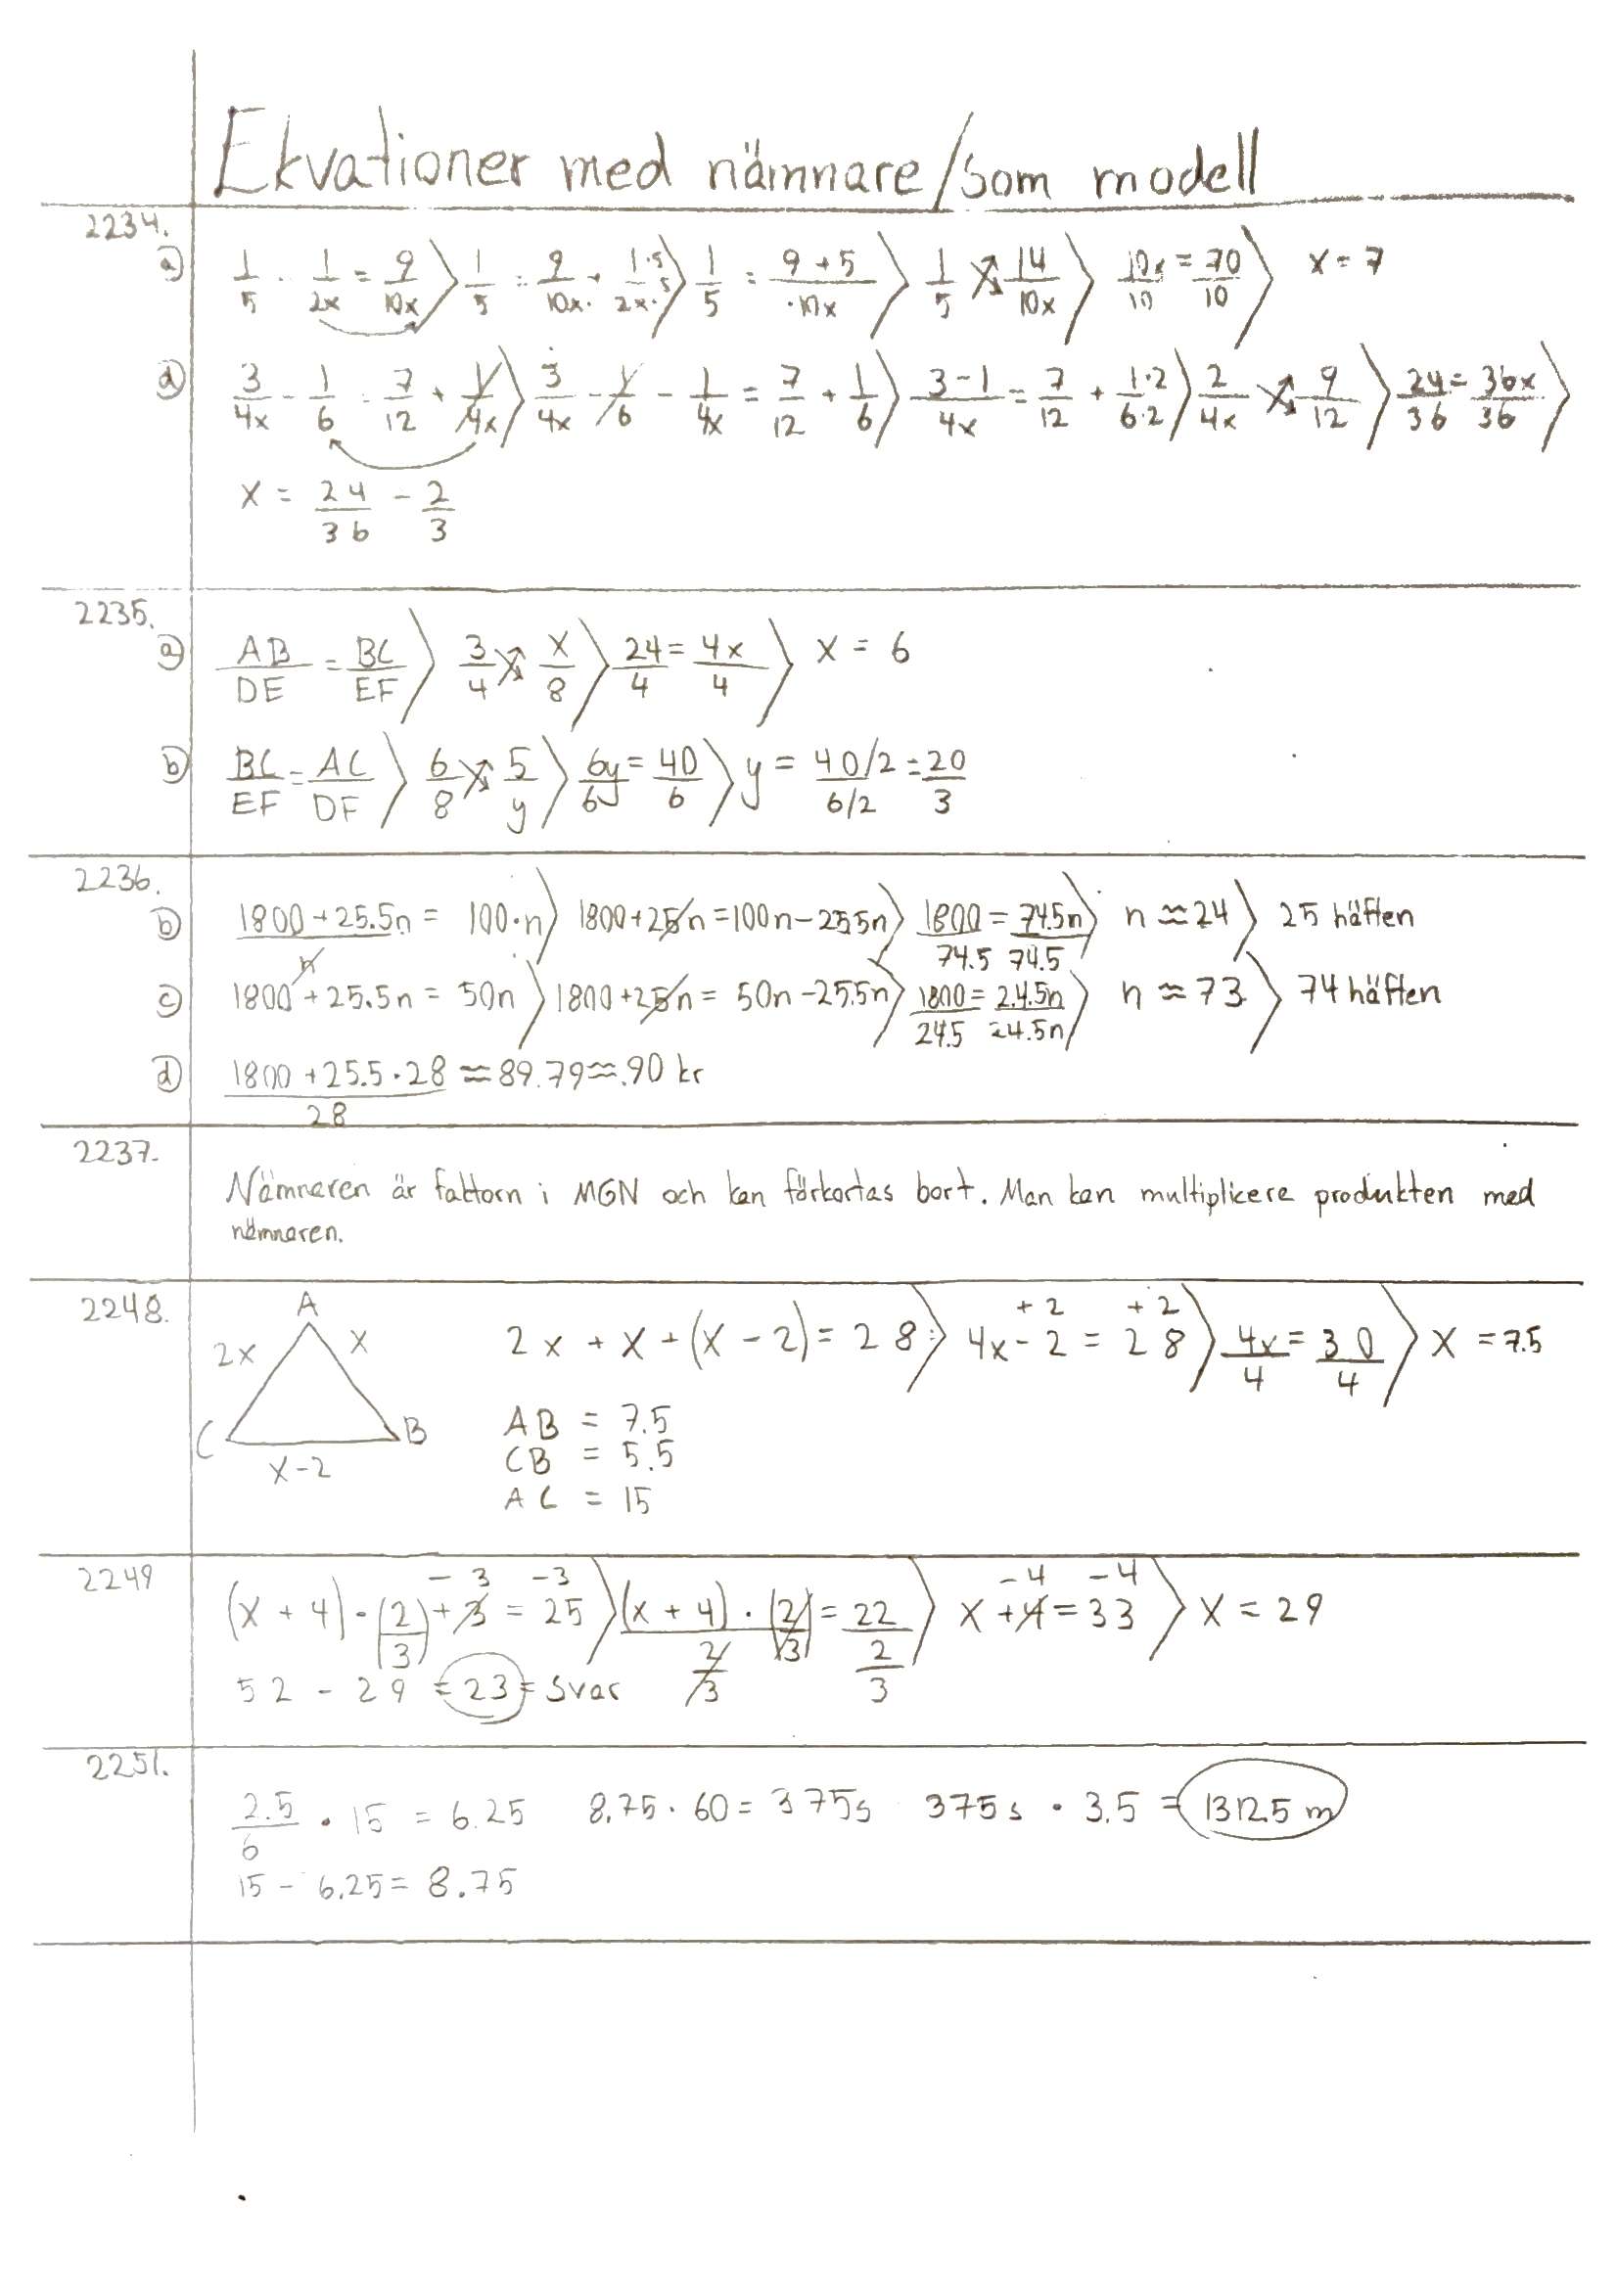 Ekvationer med nämnare/som modell
2234.
a) 1/5 - 1/2x = 9/10x > 1/5 = 9/10x + 1·5/2x·5 > 1/5 = 9+5/10x > 1/5 = 14/10x > 10x/10 = 70/10 > x = 7
d) 3/4x - 1/6 = 7/12 + 1/4x > 3/4x - 1/6 - 1/4x = 7/12 + 1/6 > 3-1/4x = 7/12 + 1·2/6·2 > 2/4x = 9/12 > 24/36 = 36x/36 >
x = 24/36 - 2/3
2235.
a) AB/DE = BC/EF > 3/4 = x/8 > 24/4 = 4x/4 > x = 6
b) BC/EF = AC/DF > 6/8 = 5/y > 6y/6 = 40/6 > y = 40/2 / 6/2 = 20/3
2236.
b) 1800+25.5n/n = 100·n > 1800+25n = 100n-25.5n > 1800/74.5 = 74.5n/74.5 > n ≈ 24 > 25 häften
c) 1800+25.5n = 50n > 1800+25n = 50n-25.5n > 1800/24.5 = 24.5n/24.5n > n ≈ 73 > 74 häften
d) 1800+25.5·28/28 ≈ 89.79 ≈ 90 kr
2237.
Nämnaren är faktorn i MGN och kan förkortas bort. Man kan multiplicera produkten med
nämnaren.
2248.
A
2x x
C B
x-2
2x + x + (x-2) = 28 > 4x-2 +2 = 28 +2 > 4x/4 = 30/4 > x = 7.5
AB = 7.5
CB = 5.5
AC = 15
2249
(x+4)·(2/3)+3 -3 = 25 -3 > (x+4)·(2/3)/(2/3) = 22/(2/3) > x+4 -4 = 33 -4 > x = 29
52 - 29 = 23 = Svar
2251.
2.5/6 · 15 = 6.25 8.75·60 = 375s 375s · 3.5 = 1312.5 m
15 - 6.25 = 8.75